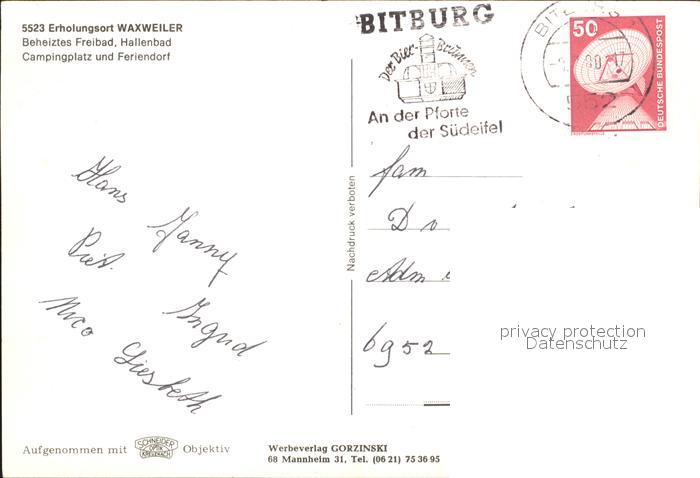 5523 Erholungsort WAXWEILER
Beheiztes Freibad, Hallenbad
Campingplatz und Feriendorf
BITBURG
Der Bier-Brunnen
An der Pforte
der Südeifel
50
DEUTSCHE BUNDESPOST
552
Nachdruck verboten
fam
Do
Adm
6952
Hans Janny
Piet. Ingrid
Nico Liesbeth
privacy protection
Datenschutz
Aufgenommen mit SCHNEIDER OPTIK KREUZNACH Objektiv
Werbeverlag GORZINSKI
68 Mannheim 31, Tel. (06 21) 75 36 95